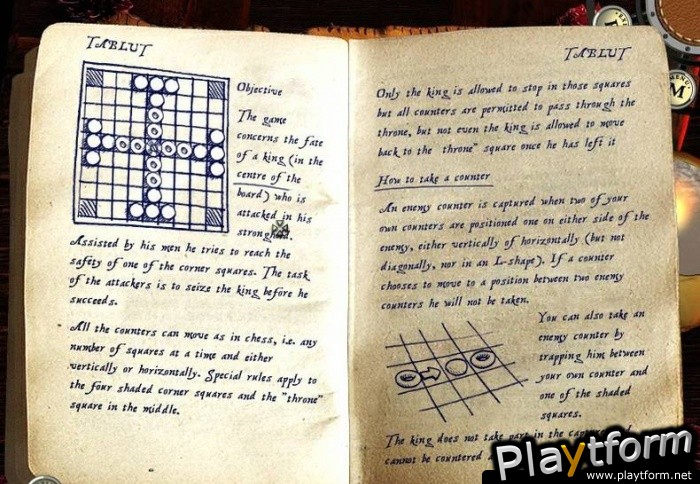 TABLUT
Objective
The game
concerns the fate
of a king (in the
centre of the
board) who is
attacked in his
Assisted by his men he tries to reach the
safety of one of the corner squares. The task
of the attackers is to seize the king before he
succeeds.
All the counters can move as in chess, i.e. any
number of squares at a time and either
vertically or horizontally. Special rules apply to
the four shaded corner squares and the "throne"
square in the middle.
TABLUT
Only the king is allowed to stop in those squares
but all counters are permitted to pass through the
throne, but not even the king is allowed to move
back to the throne" square once he has left it
How to take a counter
An enemy counter is captured when two of your
own counters are positioned one on either side of the
enemy, either vertically of horizontally (but not
diagonally, nor in an L-shape). If a counter
chooses to move to a position between two enemy
counters he will not be taken.
You can also take an
enemy counter by
trapping him between
your own counter and
one of the shaded
squares.
The king does not take part in the
cannot be countered
M
Playtform
www.playtform.net